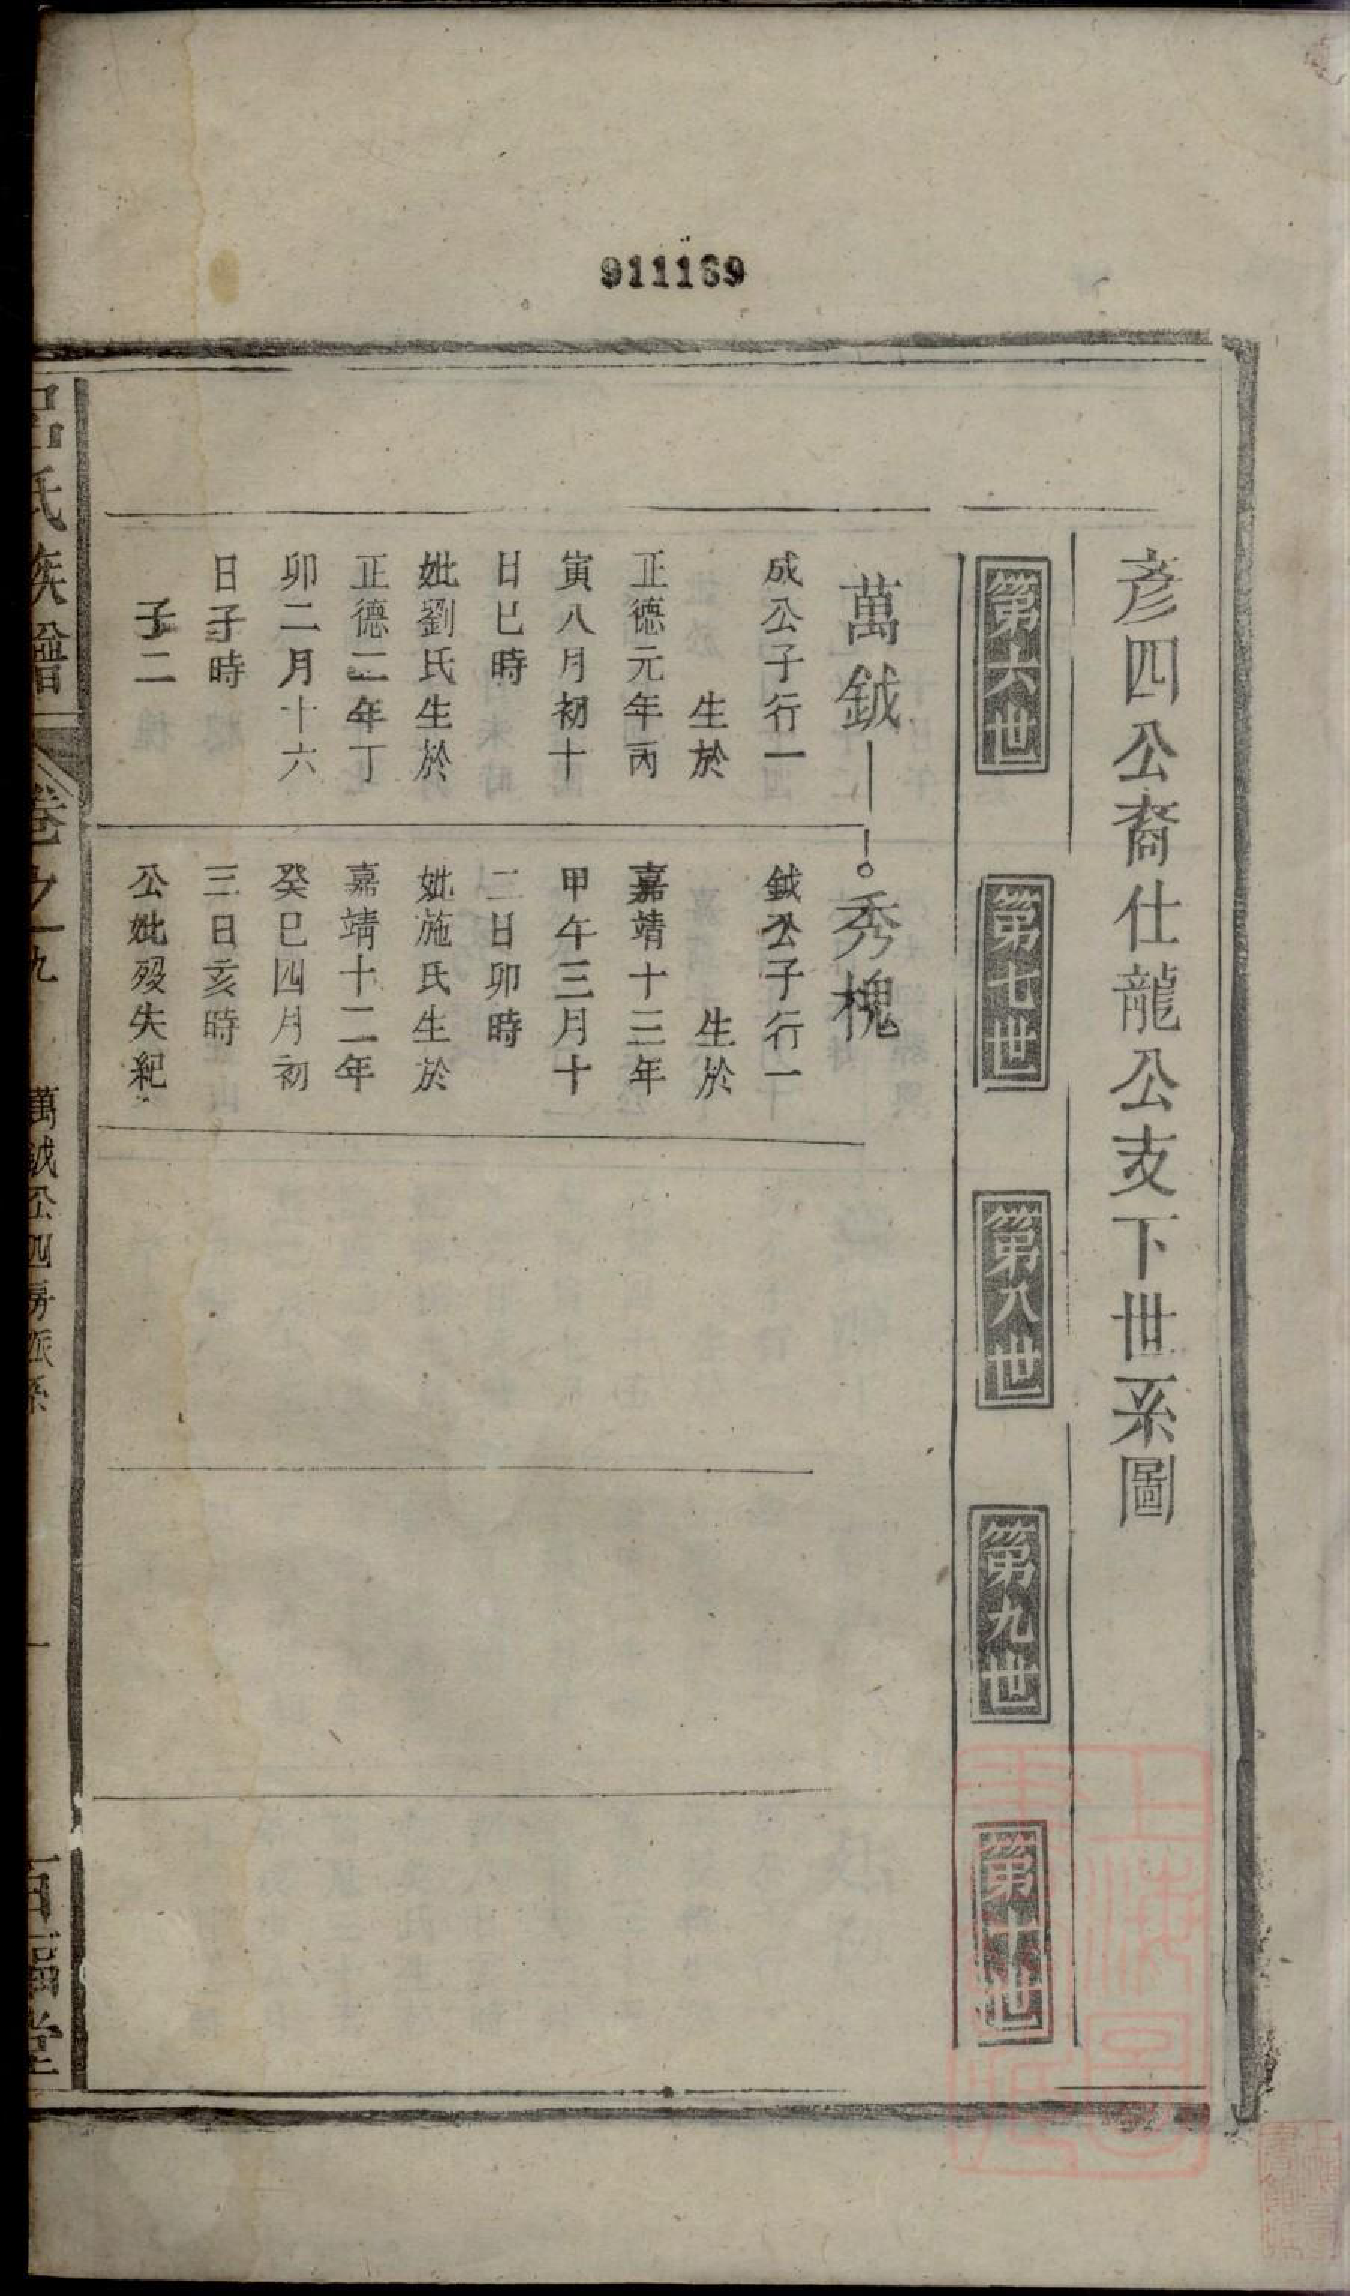 911169
彦四公裔仕龍公支下世系圖
第六世
第七世
第八世
第九世
第十世
萬鉞
成公子行一
生於
正德元年丙
寅八月初十
日巳時
妣劉氏生於
正德二年丁
卯二月十六
日子時
子二
秀槐
鉞公子行一
生於
嘉靖十三年
甲午三月十
二日卯時
妣施氏生於
嘉靖十二年
癸巳四月初
三日亥時
公妣歿失紀
呂氏族譜
卷之九
萬鉞公四房派系
一
百福堂
上海圖書館藏